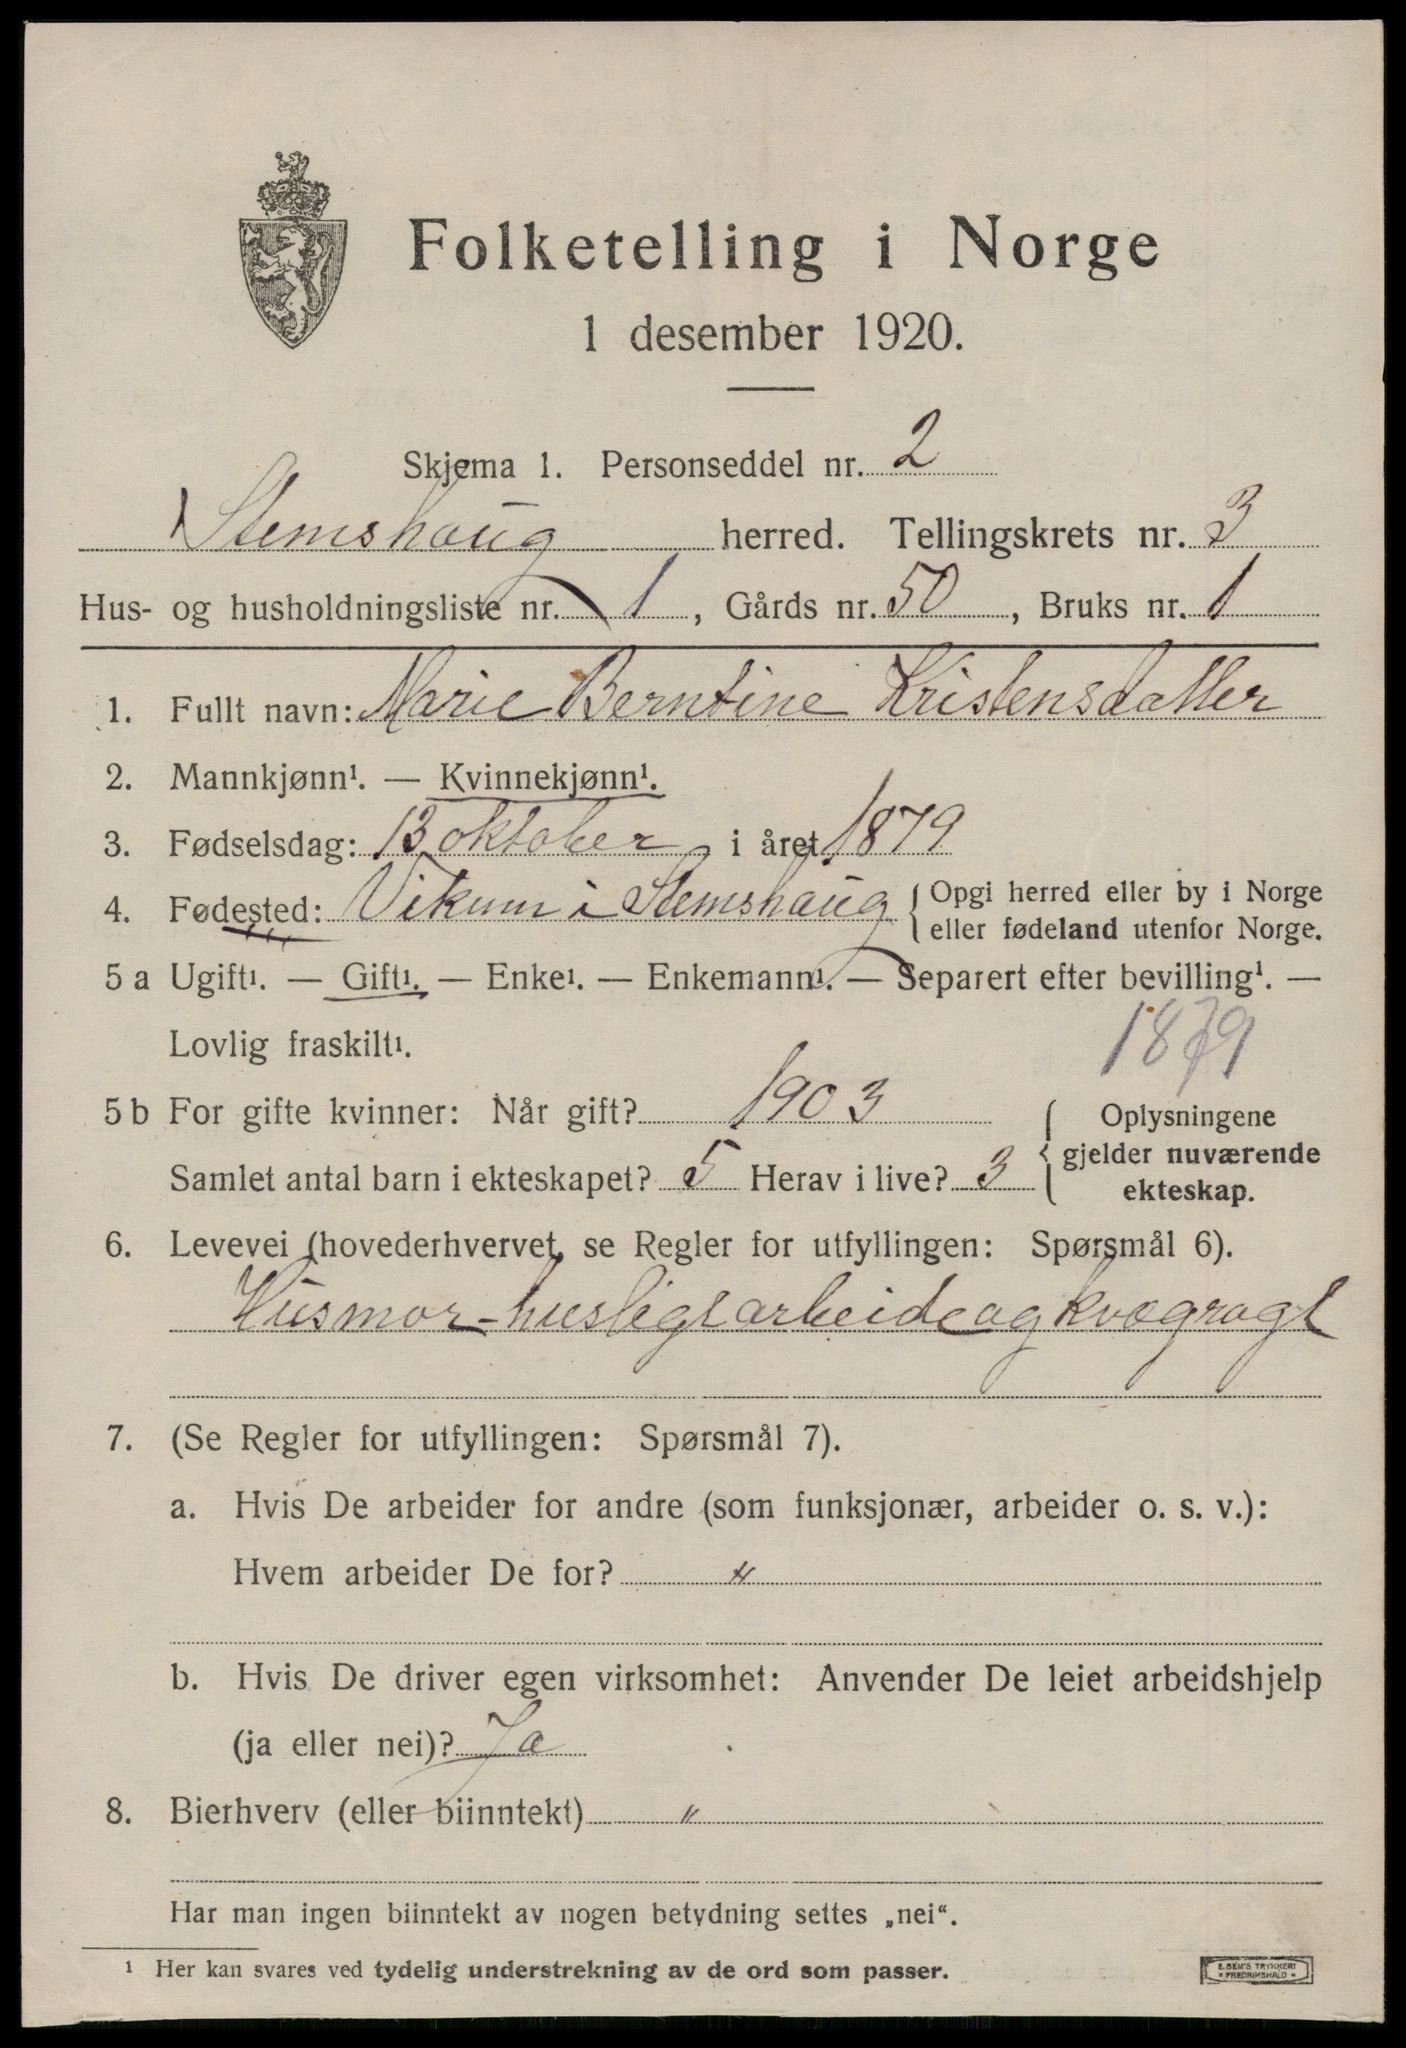 Folketelling i Norge
1 desember 1920.
Skjema 1. Personseddel nr. 2
Stemshaug herred. Tellingskrets nr. 3
Hus- og husholdningsliste nr. 1, Gårds nr. 50, Bruks nr. 1
1. Fullt navn: Marie Berntine Kristensdatter
2. Mannkjønn¹. — Kvinnekjønn¹.
3. Fødselsdag: 13 oktober i året 1879
4. Fødested: Vikum i Stemshaug { Opgi herred eller by i Norge
eller fødeland utenfor Norge.
5 a Ugift¹. — Gift¹. — Enke¹. — Enkemann¹. — Separert efter bevilling¹. —
Lovlig fraskilt¹.
1879
5 b For gifte kvinner: Når gift? 1903
Samlet antal barn i ekteskapet? 5 Herav i live? 3
{ Oplysningene
gjelder nuværende
ekteskap.
6. Levevei (hovederhvervet, se Regler for utfyllingen: Spørsmål 6).
Husmor - husligt arbeide og kvægrögt
7. (Se Regler for utfyllingen: Spørsmål 7).
a. Hvis De arbeider for andre (som funksjonær, arbeider o. s. v.):
Hvem arbeider De for? "
b. Hvis De driver egen virksomhet: Anvender De leiet arbeidshjelp
(ja eller nei)? Ja
8. Bierhverv (eller biinntekt) "
Har man ingen biinntekt av nogen betydning settes „nei“.
¹ Her kan svares ved tydelig understrekning av de ord som passer.
E. SEM'S TRYKKERI
• FREDRIKSHALD •